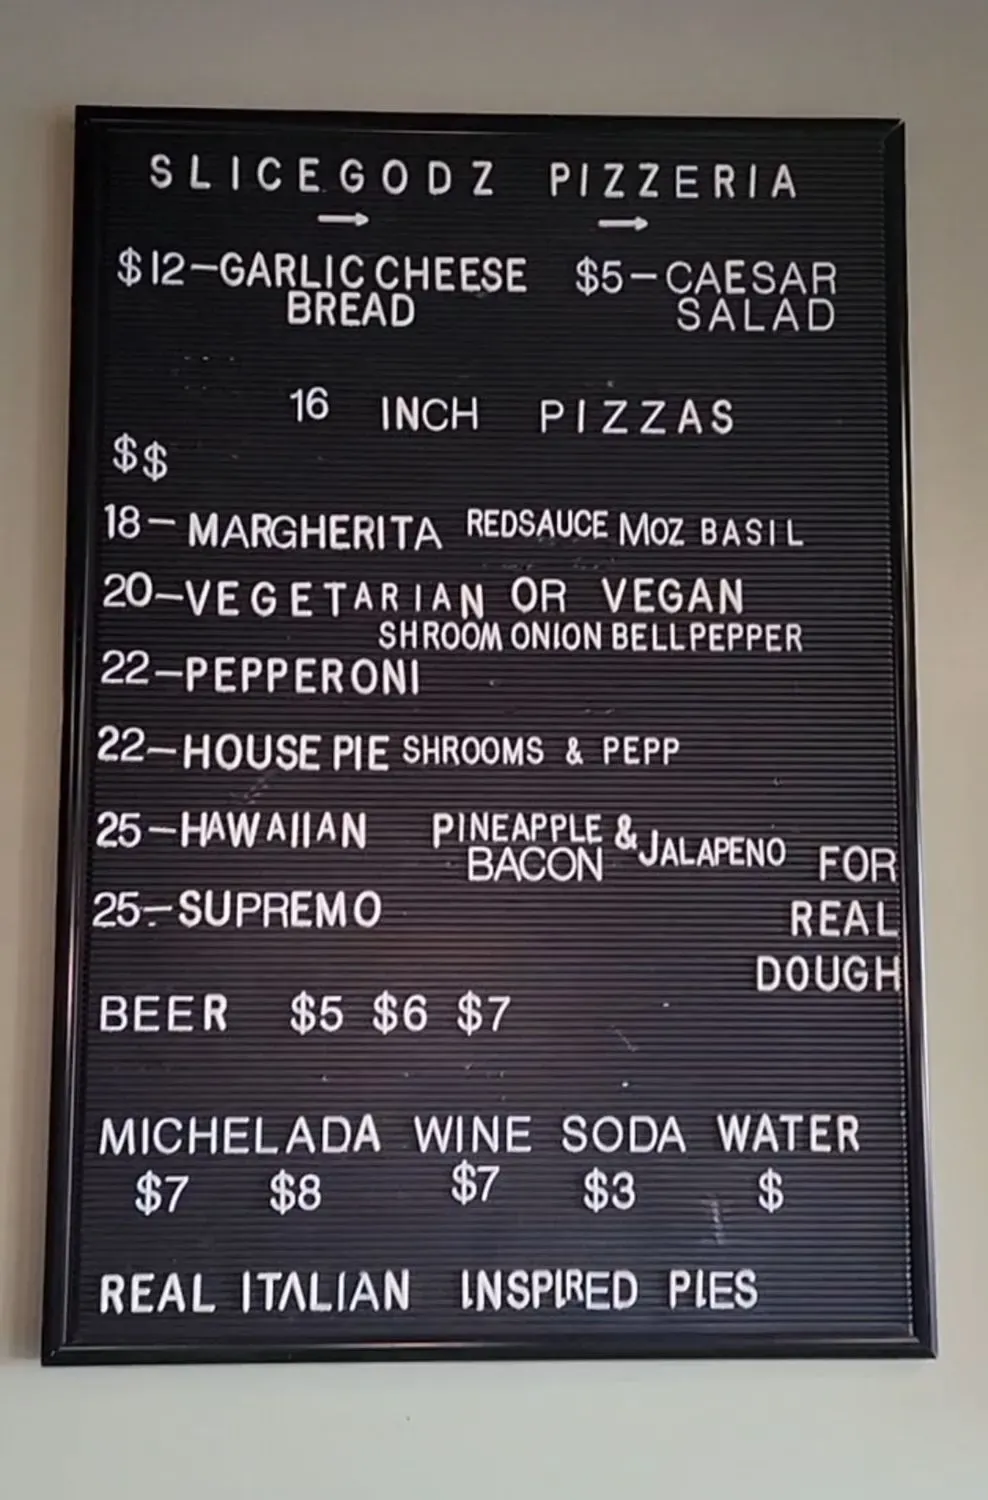 SLICEGODZ PIZZERIA
→ →
$12-GARLIC CHEESE BREAD
$5-CAESAR SALAD
16 INCH PIZZAS
$$
18-MARGHERITA REDSAUCE MOZ BASIL
20-VEGETARIAN OR VEGAN
SHROOM ONION BELLPEPPER
22-PEPPERONI
22-HOUSE PIE SHROOMS & PEPP
25-HAWAIIAN PINEAPPLE & JALAPENO
BACON
25-SUPREMO
FOR
REAL
DOUGH
BEER $5 $6 $7
MICHELADA WINE SODA WATER
$7 $8 $7 $3 $
REAL ITALIAN INSPIRED PIES